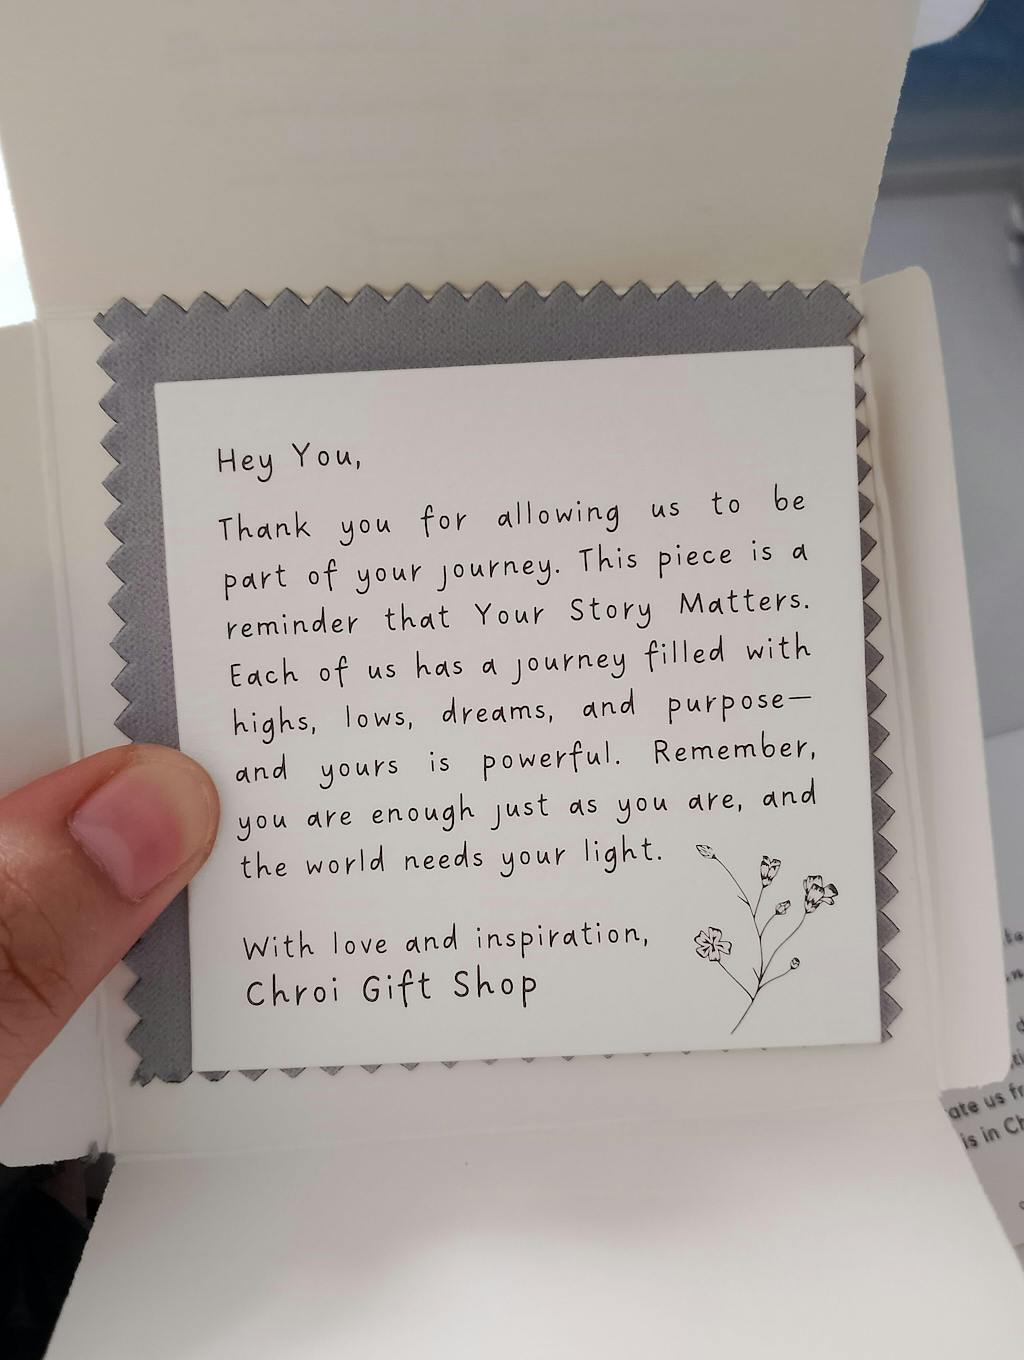 Hey You,
Thank you for allowing us to be
part of your journey. This piece is a
reminder that Your Story Matters.
Each of us has a journey filled with
highs, lows, dreams, and purpose—
and yours is powerful. Remember,
you are enough just as you are, and
the world needs your light.
With love and inspiration,
Chroi Gift Shop
ate us fr
is in Ch